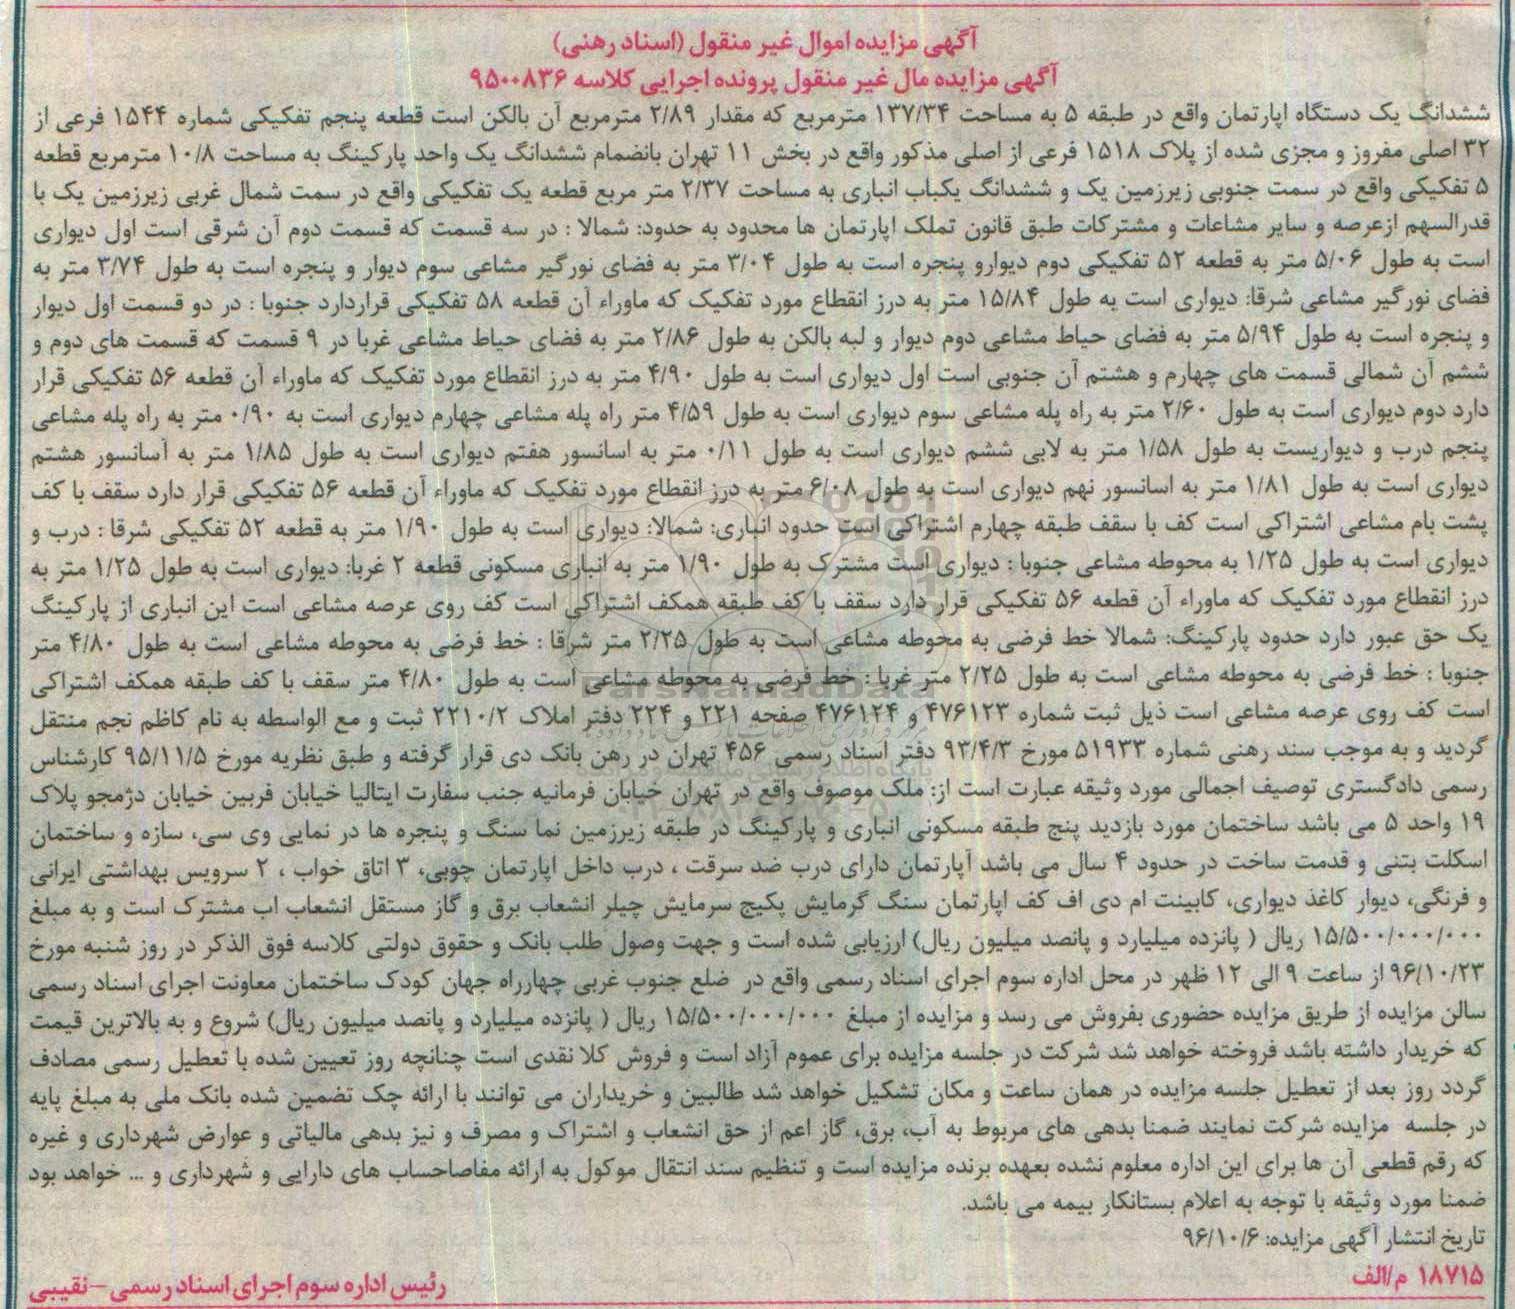 آگهی مزایده اموال غیر منقول (اسناد رهنی)
آگهی مزایده مال غیر منقول پرونده اجرایی کلاسه ۹۵۰۰۸۳۶
ششدانگ یک دستگاه اپارتمان واقع در طبقه ۵ به مساحت ۱۳۷/۳۴ مترمربع که مقدار ۲/۸۹ مترمربع آن بالکن است قطعه پنجم تفکیکی شماره ۱۵۴۴ فرعی از
۳۲ اصلی مفروز و مجزی شده از پلاک ۱۵۱۸ فرعی از اصلی مذکور واقع در بخش ۱۱ تهران بانضمام ششدانگ یک واحد پارکینگ به مساحت ۱۰/۸ مترمربع قطعه
۵ تفکیکی واقع در سمت جنوبی زیرزمین یک و ششدانگ یکباب انباری به مساحت ۲/۳۷ متر مربع قطعه یک تفکیکی واقع در سمت شمال غربی زیرزمین یک با
قدرالسهم ازعرصه و سایر مشاعات و مشترکات طبق قانون تملک اپارتمان ها محدود به حدود: شمالا : در سه قسمت که قسمت دوم آن شرقی است اول دیواری
است به طول ۵/۰۶ متر به قطعه ۵۲ تفکیکی دوم دیوارو پنجره است به طول ۳/۰۴ متر به فضای نورگیر مشاعی سوم دیوار و پنجره است به طول ۳/۷۴ متر به
فضای نورگیر مشاعی شرقا: دیواری است به طول ۱۵/۸۴ متر به درز انقطاع مورد تفکیک که ماوراء آن قطعه ۵۸ تفکیکی قراردارد جنوبا : در دو قسمت اول دیوار
و پنجره است به طول ۵/۹۴ متر به فضای حیاط مشاعی دوم دیوار و لبه بالکن به طول ۲/۸۶ متر به فضای حیاط مشاعی غربا در ۹ قسمت که قسمت های دوم و
ششم آن شمالی قسمت های چهارم و هشتم آن جنوبی است اول دیواری است به طول ۴/۹۰ متر به درز انقطاع مورد تفکیک که ماوراء آن قطعه ۵۶ تفکیکی قرار
دارد دوم دیواری است به طول ۲/۶۰ متر به راه پله مشاعی سوم دیواری است به طول ۴/۵۹ متر راه پله مشاعی چهارم دیواری است به ۰/۹۰ متر به راه پله مشاعی
پنجم درب و دیواریست به طول ۱/۵۸ متر به لابی ششم دیواری است به طول ۰/۱۱ متر به اسانسور هفتم دیواری است به طول ۱/۸۵ متر به آسانسور هشتم
دیواری است به طول ۱/۸۱ متر به اسانسور نهم دیواری است به طول ۶/۰۸ متر به درز انقطاع مورد تفکیک که ماوراء آن قطعه ۵۶ تفکیکی قرار دارد سقف با کف
پشت بام مشاعی اشتراکی است کف با سقف طبقه چهارم اشتراکی است حدود انباری: شمالا: دیواری است به طول ۱/۹۰ متر به قطعه ۵۲ تفکیکی شرقا : درب و
دیواری است به طول ۱/۲۵ به محوطه مشاعی جنوبا : دیواری است مشترک به طول ۱/۹۰ متر به انباری مسکونی قطعه ۲ غربا: دیواری است به طول ۱/۲۵ متر به
درز انقطاع مورد تفکیک که ماوراء آن قطعه ۵۶ تفکیکی قرار دارد سقف با کف طبقه همکف اشتراکی است کف روی عرصه مشاعی است این انباری از پارکینگ
یک حق عبور دارد حدود پارکینگ: شمالا خط فرضی به محوطه مشاعی است به طول ۲/۲۵ متر شرقا : خط فرضی به محوطه مشاعی است به طول ۴/۸۰ متر
جنوبا : خط فرضی به محوطه مشاعی است به طول ۲/۲۵ متر غربا : خط فرضی به محوطه مشاعی است به طول ۴/۸۰ متر سقف با کف طبقه همکف اشتراکی
است کف روی عرصه مشاعی است ذیل ثبت شماره ۴۷۶۱۲۳ و ۴۷۶۱۲۴ صفحه ۲۲۱ و ۲۲۴ دفتر املاک ۲۲۱۰/۲ ثبت و مع الواسطه به نام کاظم نجم منتقل
گردید و به موجب سند رهنی شماره ۵۱۹۳۳ مورخ ۹۳/۴/۳ دفتر اسناد رسمی ۴۵۶ تهران در رهن بانک دی قرار گرفته و طبق نظریه مورخ ۹۵/۱۱/۵ کارشناس
رسمی دادگستری توصیف اجمالی مورد وثیقه عبارت است از: ملک موصوف واقع در تهران خیابان فرمانیه جنب سفارت ایتالیا خیابان فربین خیابان دژمجو پلاک
۱۹ واحد ۵ می باشد ساختمان مورد بازدید پنج طبقه مسکونی انباری و پارکینگ در طبقه زیرزمین نما سنگ و پنجره ها در نمایی وی سی، سازه و ساختمان
اسکلت بتنی و قدمت ساخت در حدود ۴ سال می باشد آپارتمان دارای درب ضد سرقت ، درب داخل اپارتمان چوبی، ۳ اتاق خواب ، ۲ سرویس بهداشتی ایرانی
و فرنگی، دیوار کاغذ دیواری، کابینت ام دی اف کف اپارتمان سنگ گرمایش پکیج سرمایش چیلر انشعاب برق و گاز مستقل انشعاب اب مشترک است و به مبلغ
۱۵/۵۰۰/۰۰۰/۰۰۰ ریال ( پانزده میلیارد و پانصد میلیون ریال) ارزیابی شده است و جهت وصول طلب بانک و حقوق دولتی کلاسه فوق الذکر در روز شنبه مورخ
۹۶/۱۰/۲۳ از ساعت ۹ الی ۱۲ ظهر در محل اداره سوم اجرای اسناد رسمی واقع در ضلع جنوب غربی چهارراه جهان کودک ساختمان معاونت اجرای اسناد رسمی
سالن مزایده از طریق مزایده حضوری بفروش می رسد و مزایده از مبلغ ۱۵/۵۰۰/۰۰۰/۰۰۰ ریال ( پانزده میلیارد و پانصد میلیون ریال) شروع و به بالاترین قیمت
که خریدار داشته باشد فروخته خواهد شد شرکت در جلسه مزایده برای عموم آزاد است و فروش کلا نقدی است چنانچه روز تعیین شده با تعطیل رسمی مصادف
گردد روز بعد از تعطیل جلسه مزایده در همان ساعت و مکان تشکیل خواهد شد طالبین و خریداران می توانند با ارائه چک تضمین شده بانک ملی به مبلغ پایه
در جلسه مزایده شرکت نمایند ضمنا بدهی های مربوط به آب، برق، گاز اعم از حق انشعاب و اشتراک و مصرف و نیز بدهی مالیاتی و عوارض شهرداری و غیره
که رقم قطعی آن ها برای این اداره معلوم نشده بعهده برنده مزایده است و تنظیم سند انتقال موکول به ارائه مفاصاحساب های دارایی و شهرداری و ... خواهد بود
ضمنا مورد وثیقه با توجه به اعلام بستانکار بیمه می باشد.
تاریخ انتشار آگهی مزایده: ۹۶/۱۰/۶
۱۸۷۱۵ م/الف
رئیس اداره سوم اجرای اسناد رسمی – نقیبی
ParsNamadData